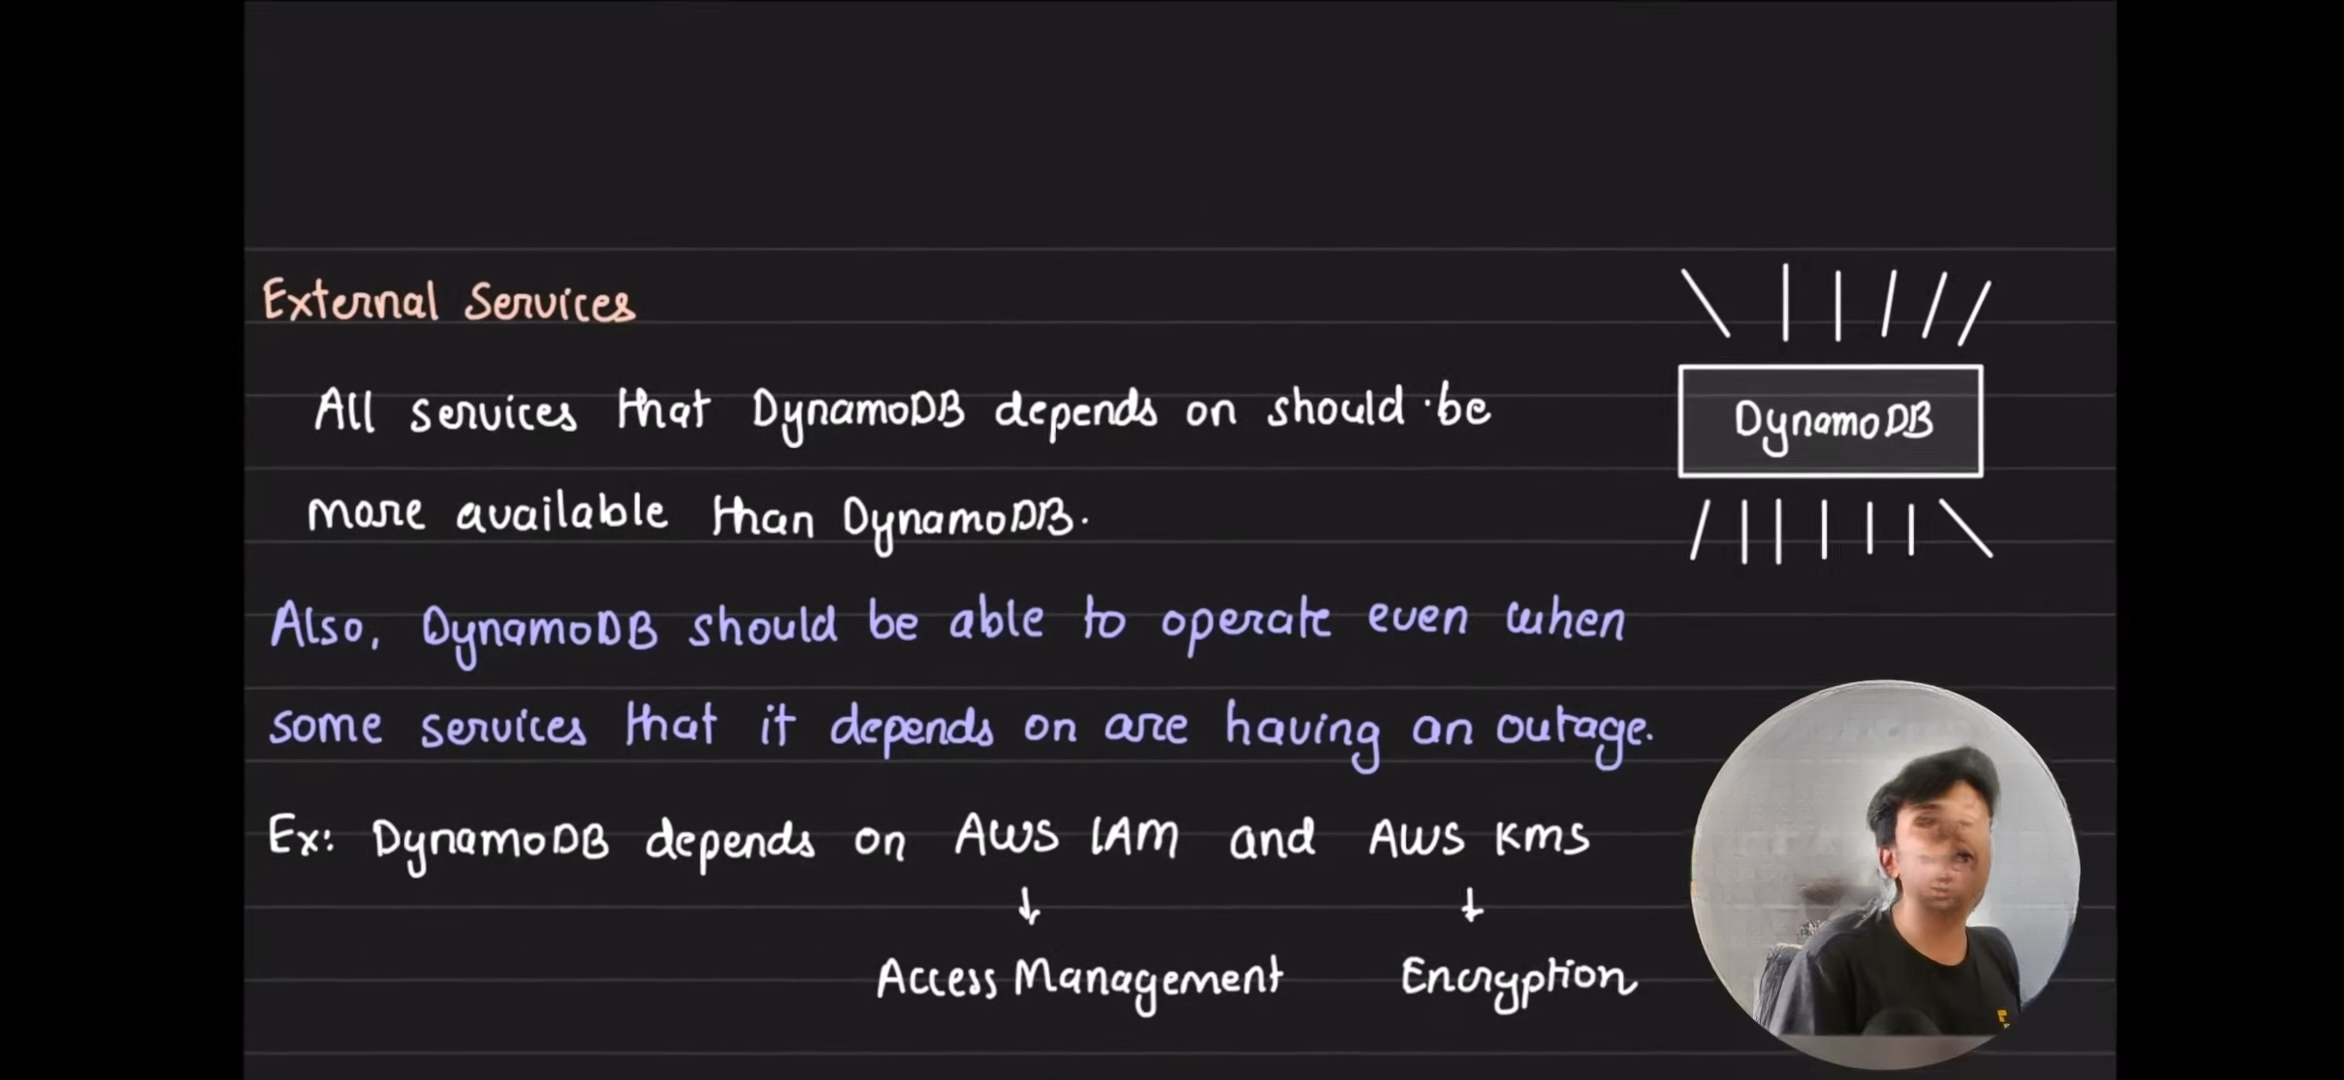 External Services
All services that DynamoDB depends on should be
more available than DynamoDB.
Also, DynamoDB should be able to operate even when
some services that it depends on are having an outage.
Ex: DynamoDB depends on AWS IAM and AWS KMS
Access Management
Encryption
DynamoDB